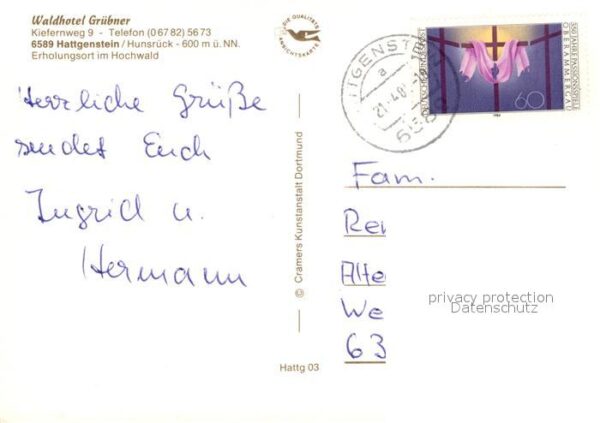 Waldhotel Grübner
Kiefernweg 9 - Telefon (0 67 82) 56 73
6589 Hattgenstein / Hunsrück - 600 m ü. NN.
Erholungsort im Hochwald
DIE QUALITÄTS
ANSICHTSKARTE
Herrliche Grüße
sendet Euch
Ingrid u.
Hermann
© Cramers Kunstanstalt Dortmund
Hattg 03
TTGENST
a
6589
DEUTSCHE BUNDESPOST
350 JAHRE PASSIONSSPIELE
OBERAMMERGAU
60
Fam.
Rei
Alte
We
63
privacy protection
Datenschutz